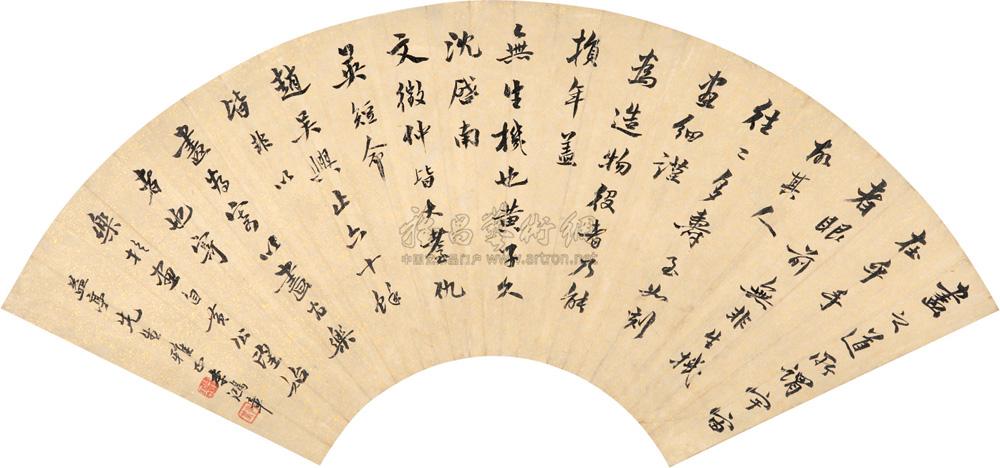 畫之道所謂宇宙
在乎手
者眼前無非生機
故其人
往〻多壽至如刻
畫細謹
為造物役者乃能
損年蓋
無生機也黃子久
沈啓南
文徵仲皆大耋仇
英短命
趙吳興止六十餘
皆非以
畫為寄以畫為樂
者也寄
樂於畫自黃公望始
亭先生雅正 李鴻章
雅昌藝術網
中国艺术品门户 www.artron.net